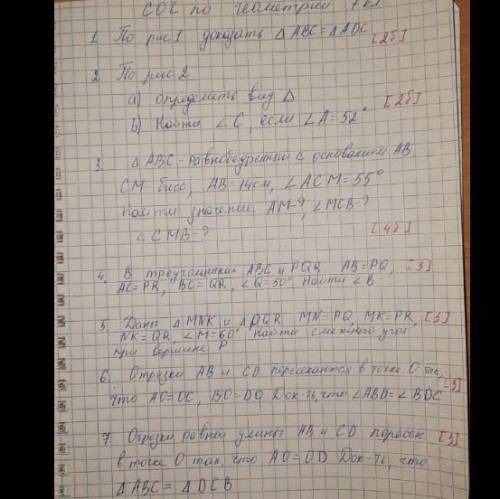 СОЧ по геометрии 7 кл
1. По рис.1 доказать △ABC=△ADC [2б]
2. По рис.2
a) определить вид △
b) Найти ∠C, если ∠A=52° [2б]
3. △ABC-равнобедренный с основанием AB
CM-бисс, AB=14см, ∠ACM=55°
Найти значение AM-?, ∠MCB-?
∠CMB-? [4б]
4. В треугольниках ABC и PQR AB=PQ, [3]
AC=PR, BC=QR, ∠Q=50° Найти ∠B
5. Даны △MNK и △PQR MN=PQ, MK=PR, [3]
NK=QR, ∠M=60° Найти смежный угол
при вершине P
6. Отрезки AB и CD пересекаются в точке O так,
что AO=OC, BO=DO Док-ть, что ∠ABD=∠BDC
7. Отрезки равной длины AB и CD пересек [3]
в точке O так, что AO=OD Док-ть, что
△ABC=△DCB